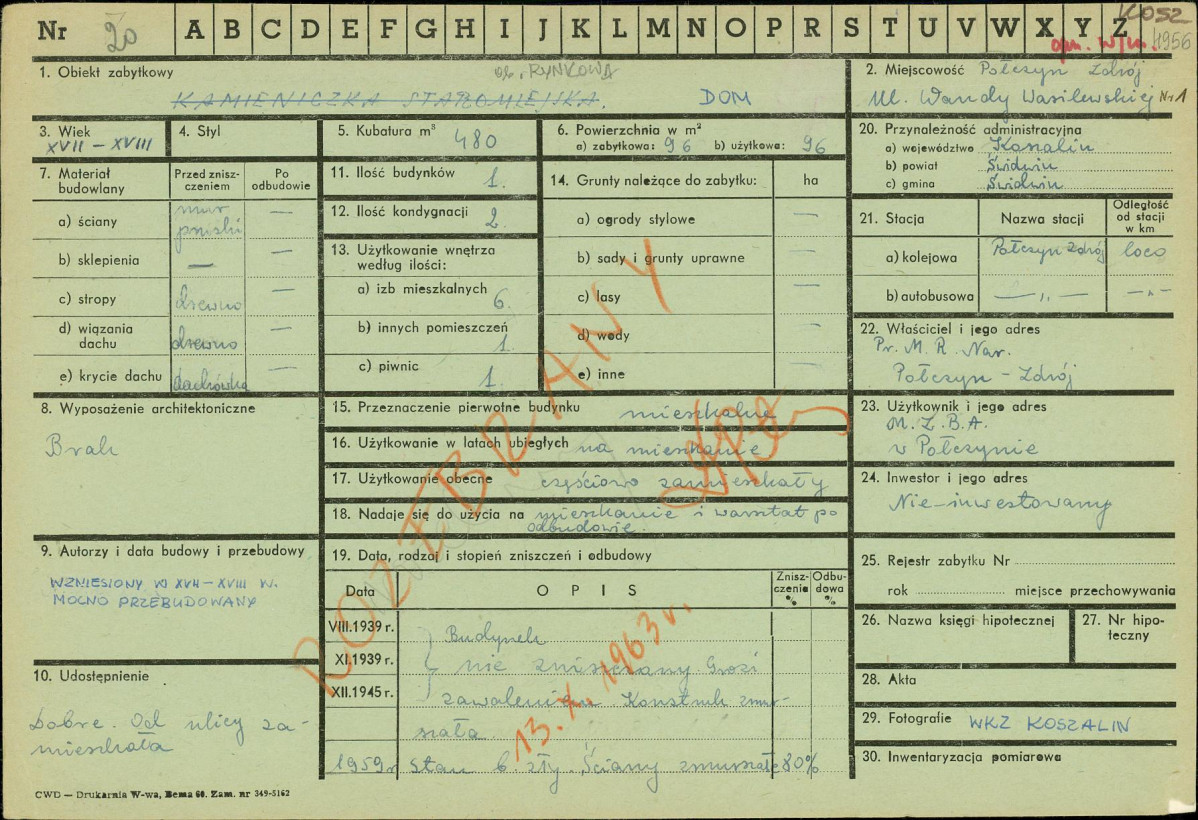 Nr 20 A B C D E F G H I J K L M N O P R S T U V W X Y Z KOSZ
1956
1. Obiekt zabytkowy
ob. RYNKOWA
KAMIENICZKA STAROMIEJSKA. DOM
2. Miejscowość Połczyn Zdrój
Ul. Wandy Wasilewskiej Nr 1
3. Wiek
XVII – XVIII
4. Styl
5. Kubatura m³ 480
6. Powierzchnia w m²
a) zabytkowa: 96 b) użytkowa: 96
20. Przynależność administracyjna
a) województwo Koszalin
b) powiat Świdwin
c) gmina Świdwin
7. Materiał budowlany
Przed zniszczeniem
Po odbudowie
a) ściany mur pruski —
b) sklepienia — —
c) stropy drewno —
d) wiązania dachu drewno —
e) krycie dachu dachówka —
11. Ilość budynków 1.
12. Ilość kondygnacji 2.
13. Użytkowanie wnętrza
według ilości:
a) izb mieszkalnych 6.
b) innych pomieszczeń 1.
c) piwnic 1.
14. Grunty należące do zabytku: ha
a) ogrody stylowe —
b) sady i grunty uprawne —
c) lasy —
d) wody —
e) inne —
21. Stacja
Nazwa stacji
Odległość od stacji w km
a) kolejowa Połczyn Zdrój loco
b) autobusowa —„— —„—
22. Właściciel i jego adres
Pr. M. R. Nar.
Połczyn – Zdrój
8. Wyposażenie architektoniczne
Brak
15. Przeznaczenie pierwotne budynku mieszkalne
16. Użytkowanie w latach ubiegłych na mieszkanie
17. Użytkowanie obecne częściowo zamieszkały
18. Nadaje się do użycia na mieszkanie i warsztat po
odbudowie.
23. Użytkownik i jego adres
M.Z.B.A.
w Połczynie
24. Inwestor i jego adres
Nie inwestowany
9. Autorzy i data budowy i przebudowy
WZNIESIONY W XVII – XVIII W.
MOCNO PRZEBUDOWANY
10. Udostępnienie
Dobre. Od ulicy za-
mieszkała
19. Data, rodzaj i stopień zniszczeń i odbudowy
Data
OPIS
Zniszczenie %
Odbudowa %
VIII.1939 r. Budynek
XI.1939 r. nie zniszczony. Grozi
XII.1945 r. zawaleniem. Konstruk. zmur-
szała.
1959 r. Stan b. zły. Ściany zmurszałe 80%
ROZEBRANY
13.X.1963 r.
25. Rejestr zabytku Nr
rok miejsce przechowywania
26. Nazwa księgi hipotecznej
27. Nr hipoteczny
28. Akta
29. Fotografie WKZ KOSZALIN
30. Inwentaryzacja pomiarowa
CWD — Drukarnia W-wa, Bema 60. Zam. nr 349-5162